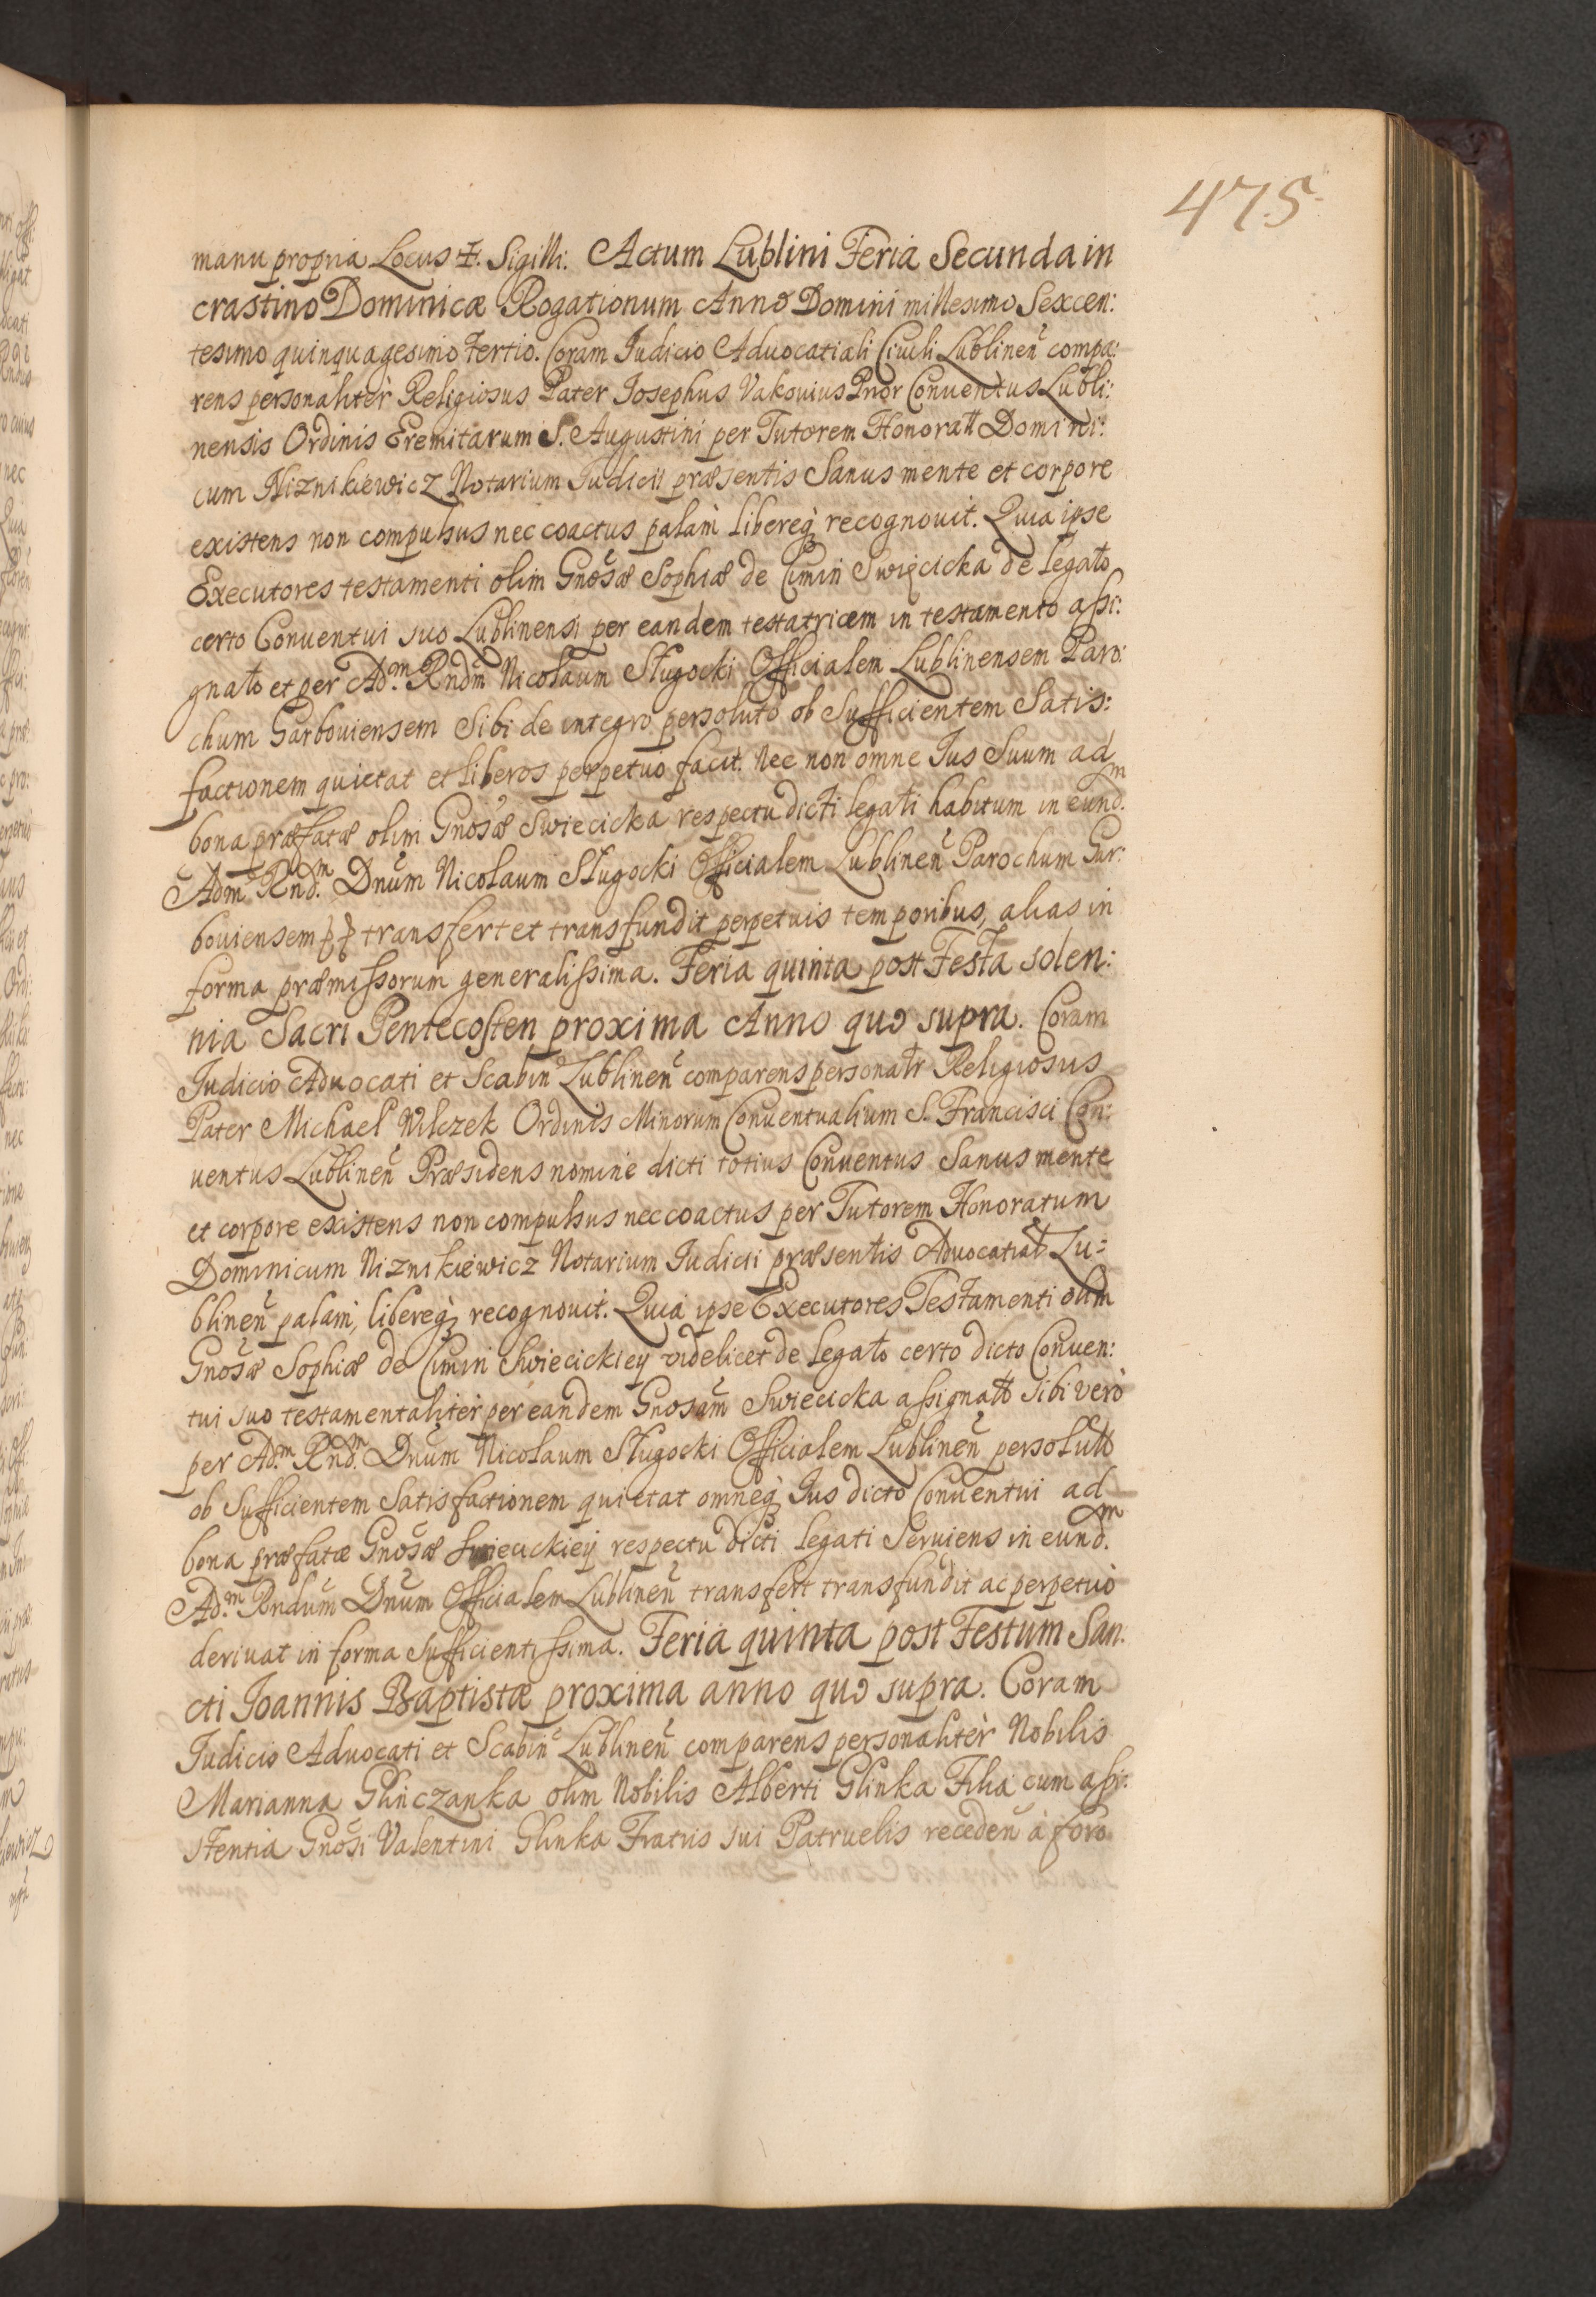 475
manu propria Locus ‡. Sigilli. Actum Lublini Feria Secunda in
crastino Dominicæ Rogationum Anno Domini millesimo Sexcen:
tesimo quinquagesimo tertio. Coram Judicio Aduocatiali Ciuili Lublinen̄ compa:
rens personalitèr Religiosus Pater Josephus Vakouius Prior Conuentus Lubli:
nensis Ordinis Eremitarum S. Augustini per Tutorem Honoratt Domini:
cum Niznikiewicz Notarium Judicii præsentis Sanus mente et corpore
existens non compulsus nec coactus palàm libereq̀ recognouit. Quia ipse
Executores testamenti olim Gnosæ Sophiæ de Cimin Swięcicka de legato
certo Conuentui suo Lublinensi per eandem testatricem in testamento assi:
gnato et per Ad.m Rndm̄ Nicolaum Sługocki Officialem Lublinensem Paro:
chum Garbouiensem Sibi de integro persoluto ob Sufficientem Satis:
factionem quietat et liberos perpetuo facit. Nec non omne Jus Suum ad
bona præfatæ olim Gnosæ Swiecicka respectu dicti legati habitum in eund.m
Adm̄ Rnd.m Dnum Nicolaum Sługocki Officialem Lublinen̄ Parochum Gar:
bouiensem transfert et transfundit perpetuis temporibus, alias in
forma præmissorum generalissima. Feria quinta post Festa solen:
nia Sacri Pentecosten proxima Anno quo supra. Coram
Judicio Aduocati et Scabin̄ Lublinen̄ comparens personalr Religiosus
Pater Michael Wilczek Ordinis Minorum Conuentualium S. Francisci Con:
uentus Lublinen̄ Præsidens nomine dicti totius Conuentus Sanus mente
et corpore existens non compulsus nec coactus per Tutorem Honoratum
Dominicum Niznikiewicz Notarium Judicii præsentis Aduocatialt Lu:
blinen̄ palam, libereq̀ recognouit. Quia ipse Executores Testamenti olim
Gnosæ Sophiæ de Cimin Swiecickiey videlicet de legato certo dicto Conuen:
tui suo testamentalitèr per eandem Gnosam̄ Swiecicka assignatt sibi verò
per Ad.m Rnd.m Dnum Nicolaum Sługocki Officialem Lublinen̄ persolutt
ob Sufficientem Satisfactionem quietat omneq̀ Jus dicto Conuentui ad
bona præfatæ Gnosæ Swiecickiey respectu dicti legati Seruiens in eund.m
Ad.m Rndum Dnum Officialem Lublinen̄ transfert transfundit ac perpetuò
deriuat in forma Sufficientissima. Feria quinta post Festum San:
cti Joannis Baptistæ proxima anno quo supra. Coram
Judicio Aduocati et Scabin̄ Lublinen̄ comparens personalitèr Nobilis
Marianna Glinczanka olim Nobilis Alberti Glinka Filia cum assi:
stentia Gnosi Valentini Glinka Fratris sui Patruelis receden̄ à foro